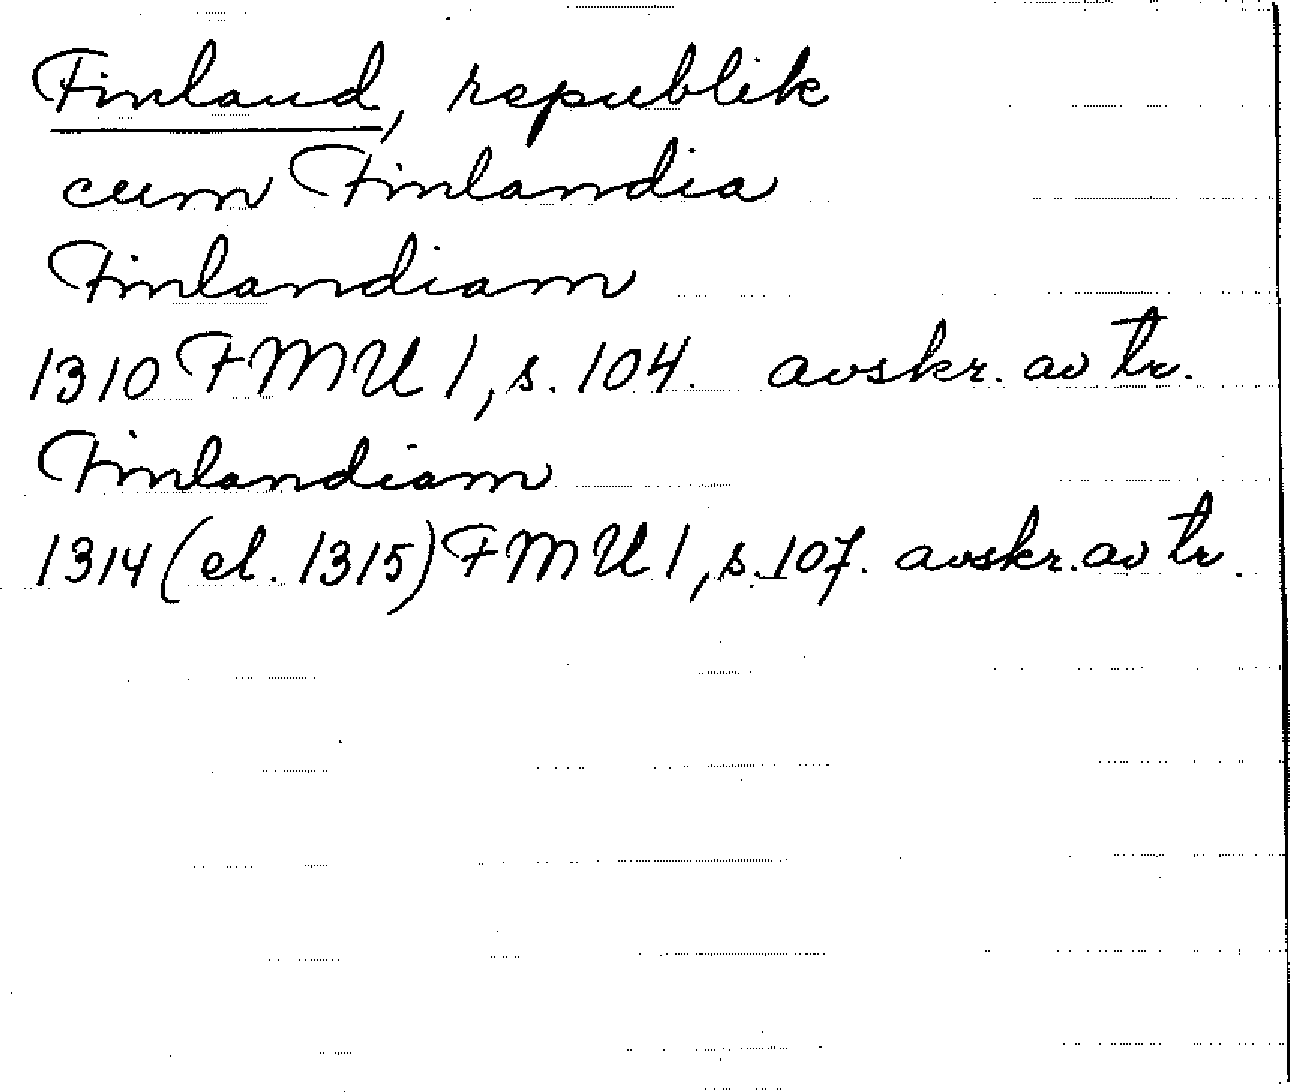 Finland, republik
cum Finlandia
Finlandiam
1310 FMU 1, s. 104. avskr. av tr.
Finlandiam
1314 (el. 1315) FMU 1, s. 107. avskr. av tr.